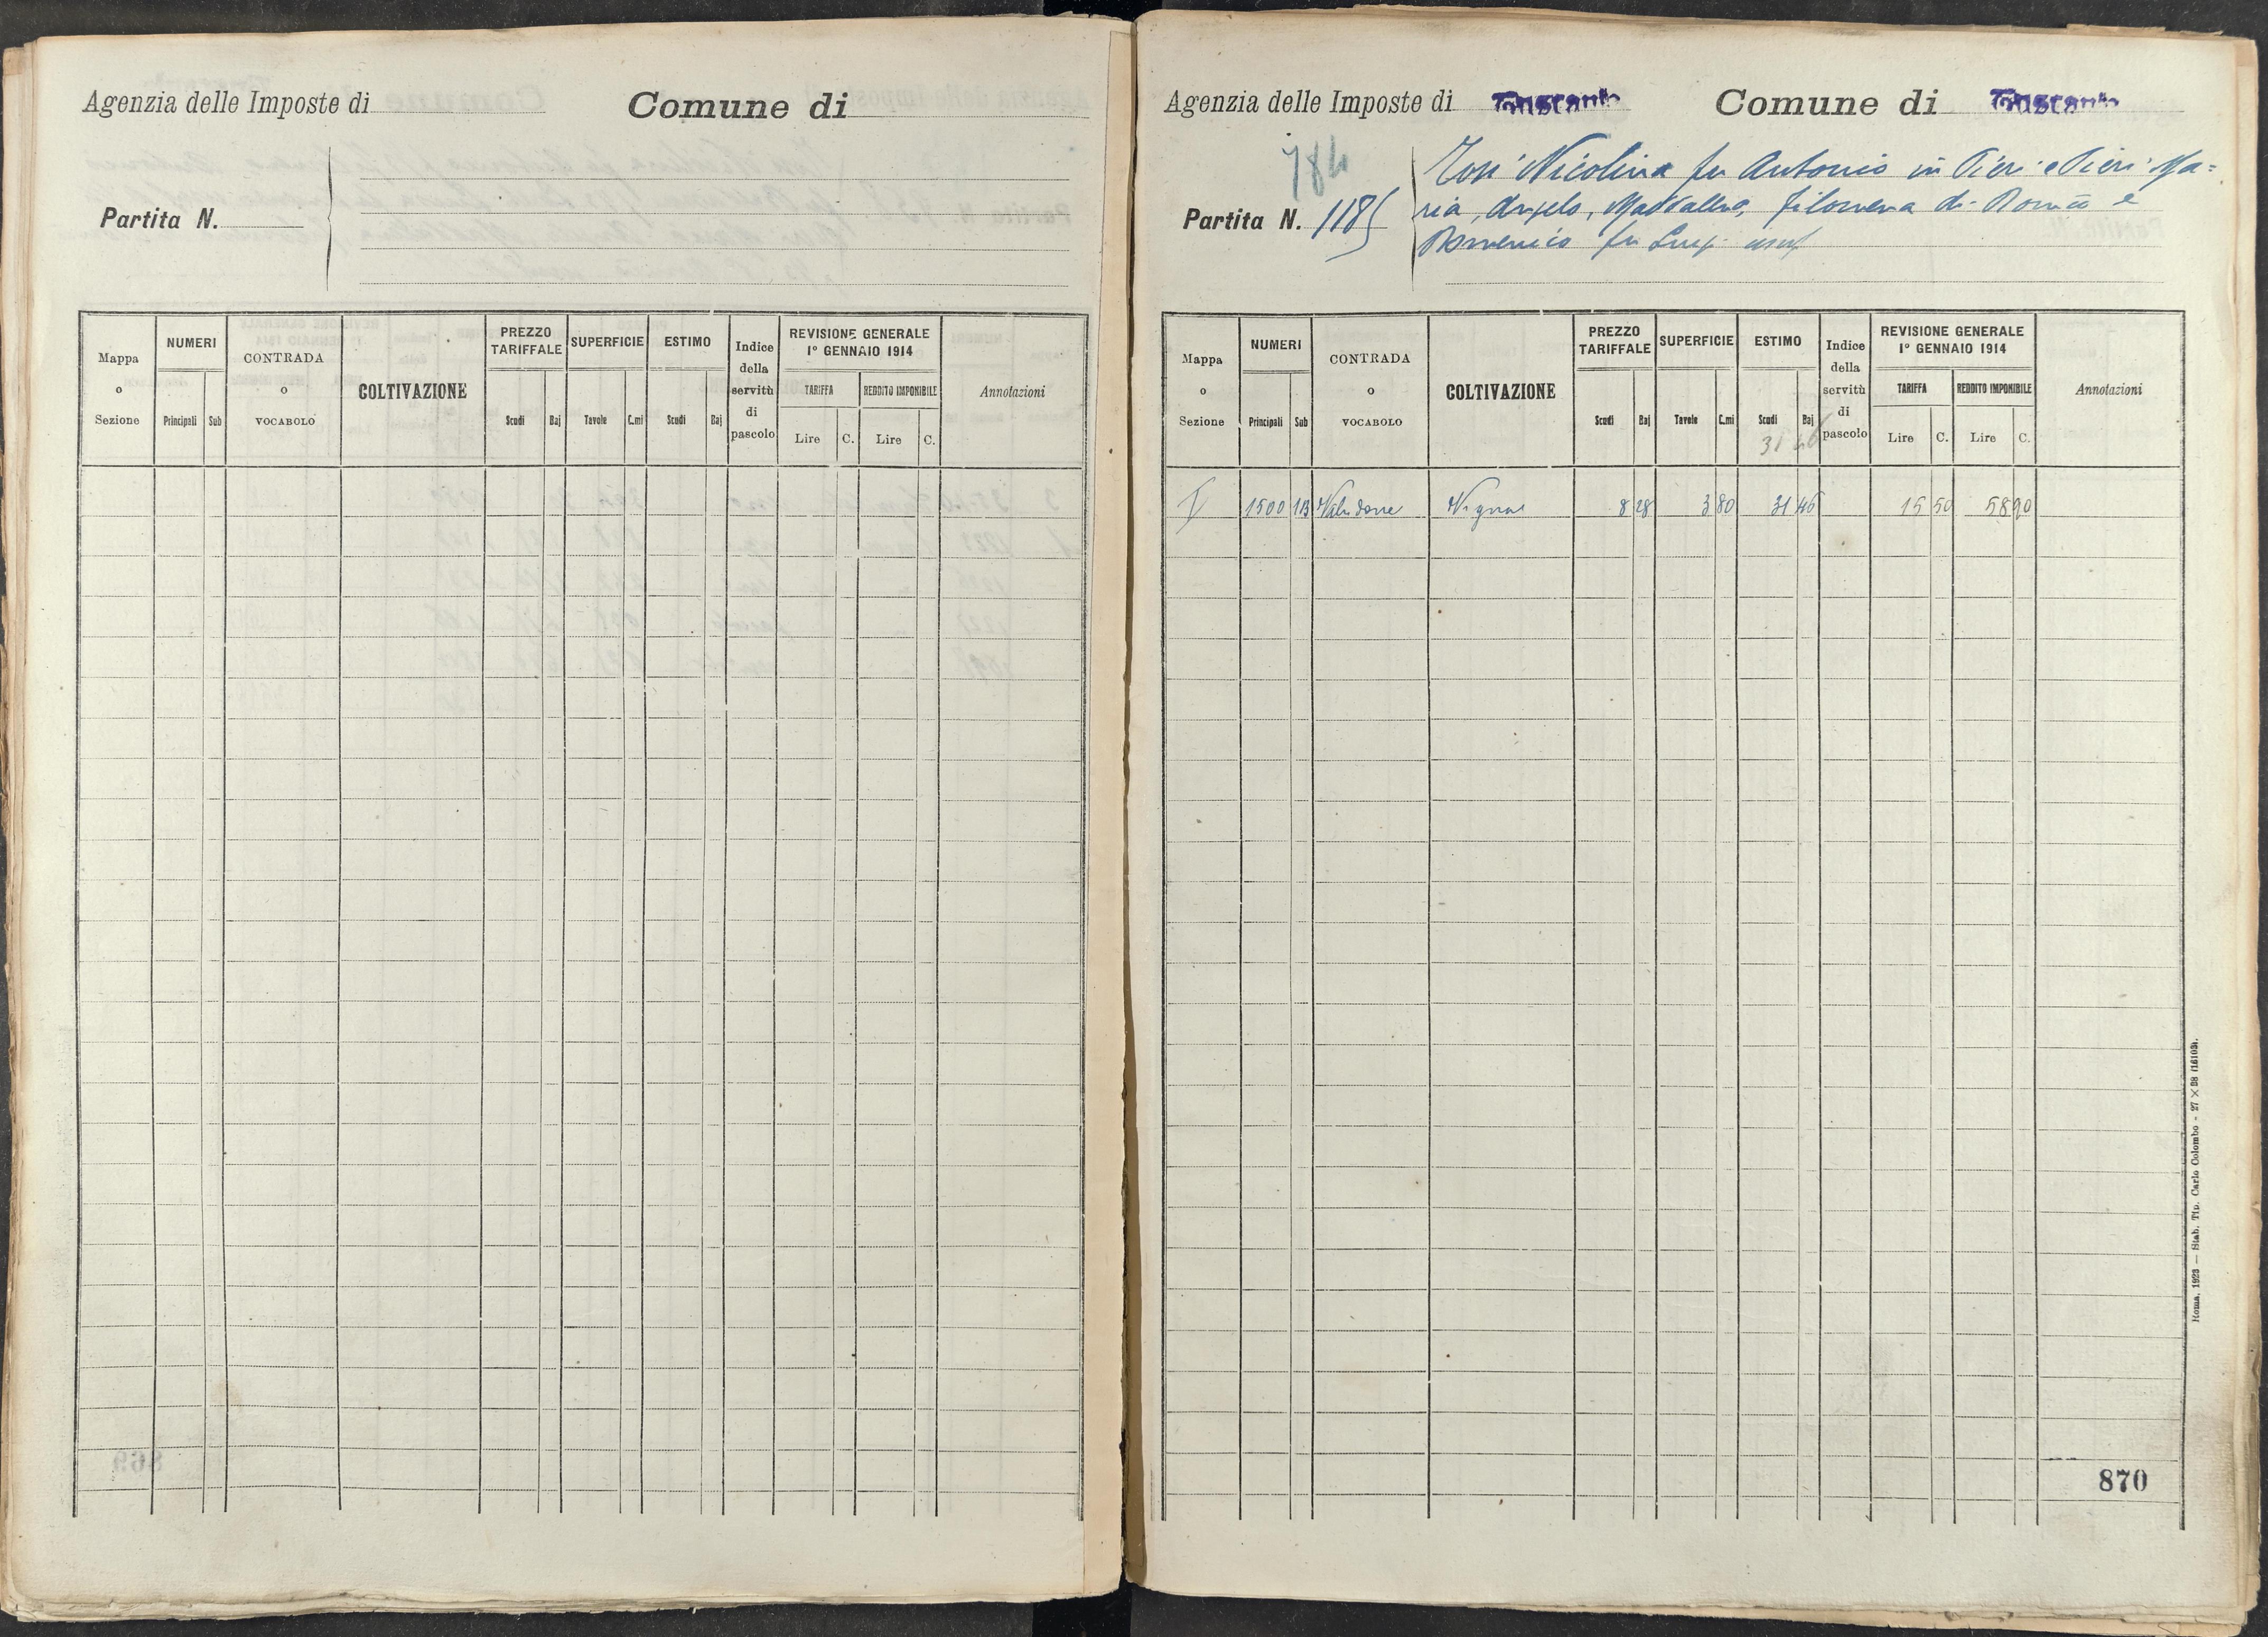 Agenzia delle Imposte di
Comune di
Partita N.
Mappa o Sezione
NUMERI
Principali
Sub
CONTRADA o VOCABOLO
COLTIVAZIONE
PREZZO TARIFFALE
Scudi
Baj
SUPERFICIE
Tavole
C.mi
ESTIMO
Scudi
Baj
Indice della servitù di pascolo
REVISIONE GENERALE
1° GENNAIO 1914
TARIFFA
REDDITO IMPONIBILE
Lire
C.
Lire
C.
Annotazioni
Agenzia delle Imposte di Toscania
Comune di Toscania
784
Partita N. 1185
Nicolina fu Antonio in Pieri e Pieri Ma=
ria, Angelo, Maddalena, Filomena di Domco e
Domenico fu Luigi usuf
Mappa o Sezione
NUMERI
Principali
Sub
CONTRADA o VOCABOLO
COLTIVAZIONE
PREZZO TARIFFALE
Scudi
Baj
SUPERFICIE
Tavole
C.mi
ESTIMO
Scudi
Baj
31 46
Indice della servitù di pascolo
REVISIONE GENERALE
1° GENNAIO 1914
TARIFFA
REDDITO IMPONIBILE
Lire
C.
Lire
C.
Annotazioni
V 1500 1/3 Vigna 8 28 3 80 31 46 15 50 58 90
870
Roma, 1923 — Stab. Tip. Carlo Colombo - 27 × 38 (16103).